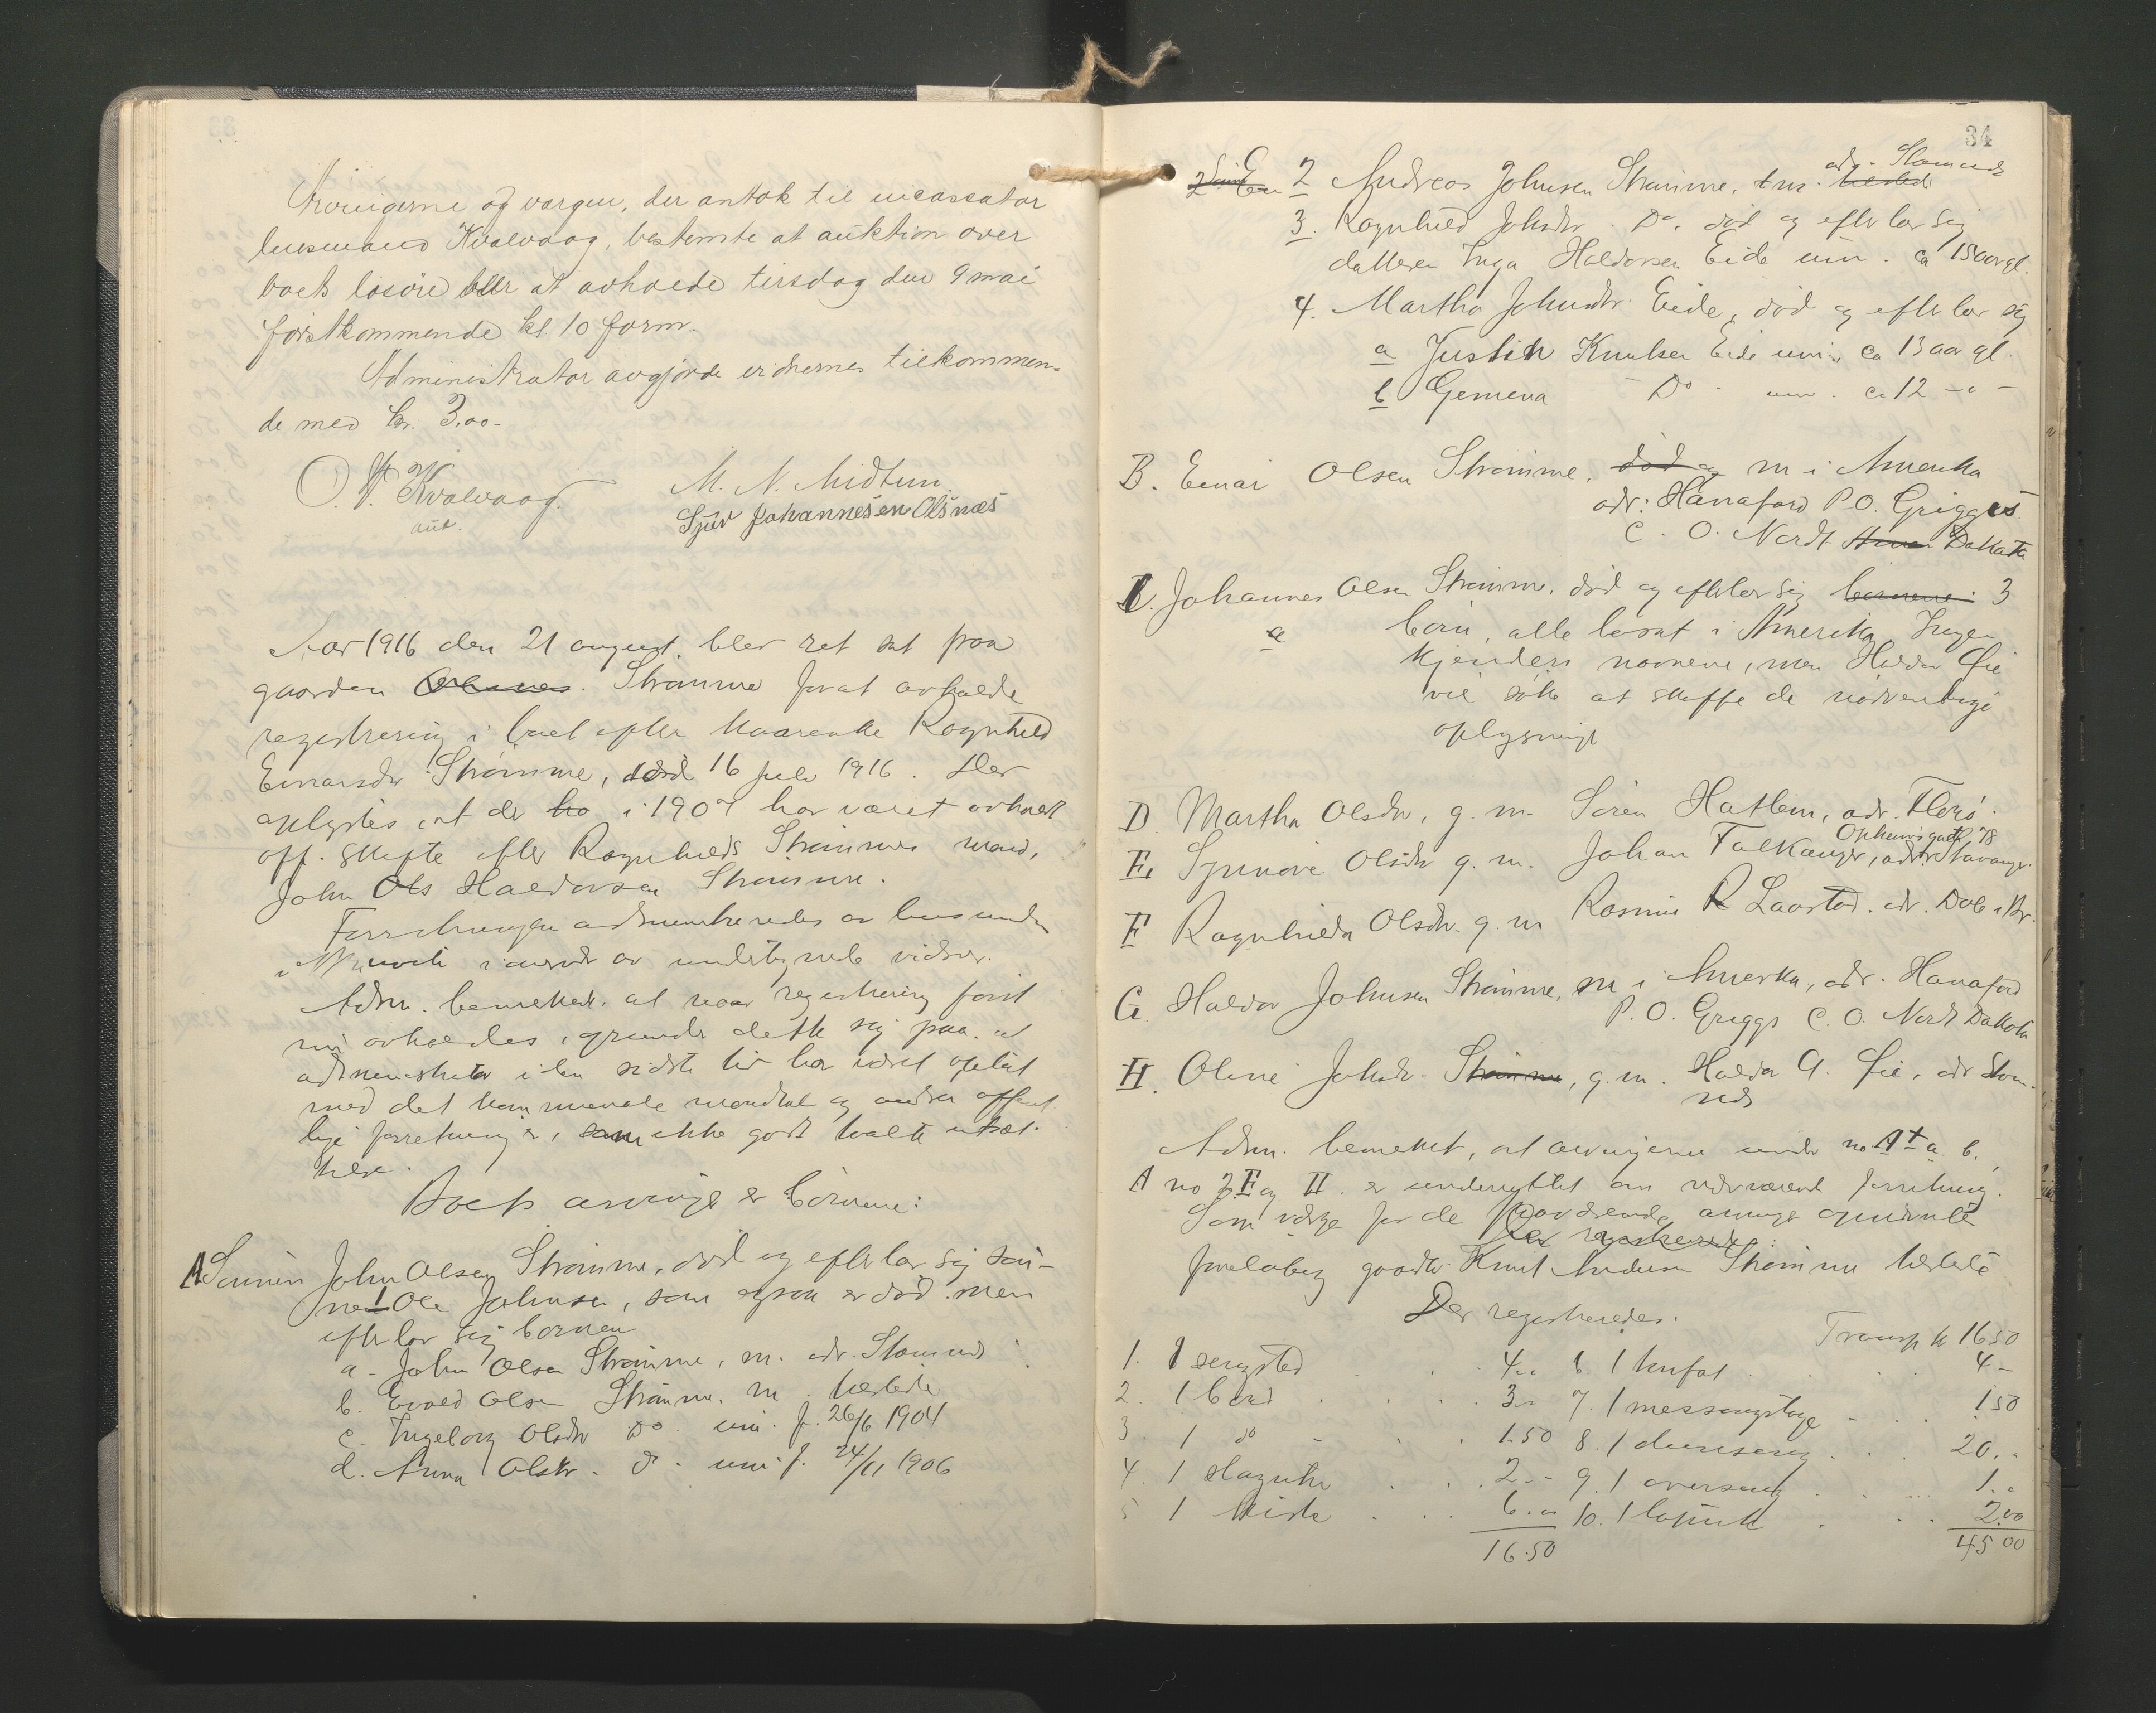 Arvingerne og vergen, der antok til incassator
lensmand Kvalvaag, bestemte at auktion over
boets løsøre blir at avholde tirsdag den 9 mai
førstkommende kl. 10 form.
Administrator avgjorde vidnernes tilkommen-
de med kr. 3,00-
O. A. Kvalvaag
aut.
M. N. Midtun
Sjur Johannesen Olsnæs
Aar 1916 den 21 august blev ret sat paa
gaarden Strømme for at avholde
registrering i boet efter kaarenke Ragnhild
Einarsdr Strømme, død 16 juli 1916. Der
oplystes, at der ho i 1909 har været avholdt
off. skifte efter Ragnhilds Strømmes mand,
John Ols Haldorsen Strømme.
Forretningen administreredes av lensmanden
i nærvær av undertegnede vidner.
Adm. bemerket at naar registrering først
nu avholdes, grunder dette sig paa at
administrator i den sidste tid har været optat
med det kommunale mandtal og andre offent
lige forretninger, som ikke godt kunde utsæt-
tes.
Boets arvinge er børnene:
A Sønnen John Olsen Strømme, død og efterlar sig søn-
nen 1 Ole Johnsen, som ogsaa er død men
efterlar sig børnen
a. John Olsen Strømme, m. adr. Stamnes
b. Evald Olsen Strømme, m. herstede
c. Ingeborg Olsdr Do um. f. 26/6 1904
d. Anna Olsdr. Do um f. 24/11 1906
34
2 Andreas Johnsen Strømme, m. adr. Stamnes herstede
3. Ragnhild Johsdr. Do. død og efterlar sig
datteren Inga Haldorsen Eide um. ca 15 aar gl.
4. Martha Johnsdr. Eide, død og efterlar sig
a Justin Knutsen Eide um. ca 13 aar gl.
b Gemena - Do - um. ca 12 -"-
B. Einar Olsen Strømme, død og m i Amerika
adr: Hanaford P.O. Griggs
C. O. Nordt Amer Dakota
C. Johannes Olsen Strømme, død og efterlar sig børnene 3
a børn, alle bosat i Amerika. Ingen
kjender navnene, men Haldor Øie
vil søke at skaffe de nødvendige
oplysninger
D. Martha Olsdr, g. m. Søren Hatlem, adr. Florø.
E. Synnøve Olsdr g. m. Johan Falkanger, adr Opheimsgate 78 Stavanger.
F Ragnhilda Olsdr. g. m Rasmus R Laastad. adr. Dale i Br.
G Haldor Johnsen Strømme, m i Amerka, adr. Hanaford
P. O. Griggs C. O. Nord Dakota
H. Oline Johsdr. Strømme, g. m. Haldor A. Øie, adr Stam-
nes
Adm. bemerket, at arvingerne under no A 1 a. b.,
A no 2 F og H. er underrettet om nærværende forretning.
Som verge for de fraværende arvinge opnævnte
Der registreredes:
foreløbig gaardbr Knut Andersen Strømme herstede
Der registreredes.
Transp kr 16 50
1. 1 sengsted . . 4.00
2. 1 bord . . 3.00
3. 1 do . . 1.50
4. 1 slagutr . . 2.--
5 1 kiste . . 6.00
16.50
6. 1 . . 4-
7. 1 messingstage . . 1 50
8. 1 dunseng . . 20.-
9. 1 overseng . . 1.-
10. 1 . . 2.00
45 00